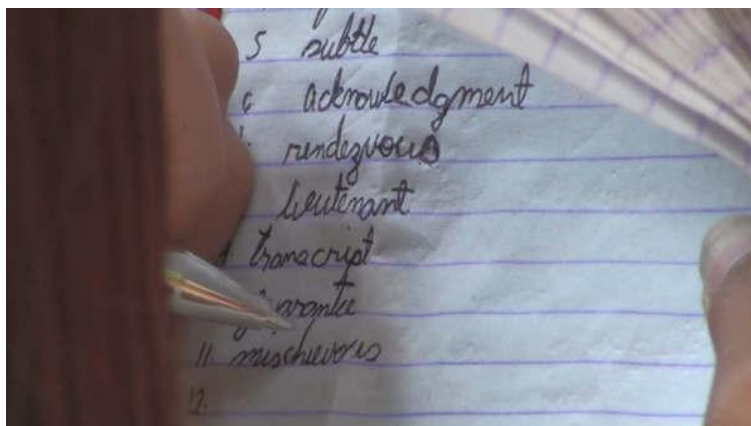 5 subtle
6 acknowledgment
rendezvous
lieutenant
transcript
11 mischievous
12.